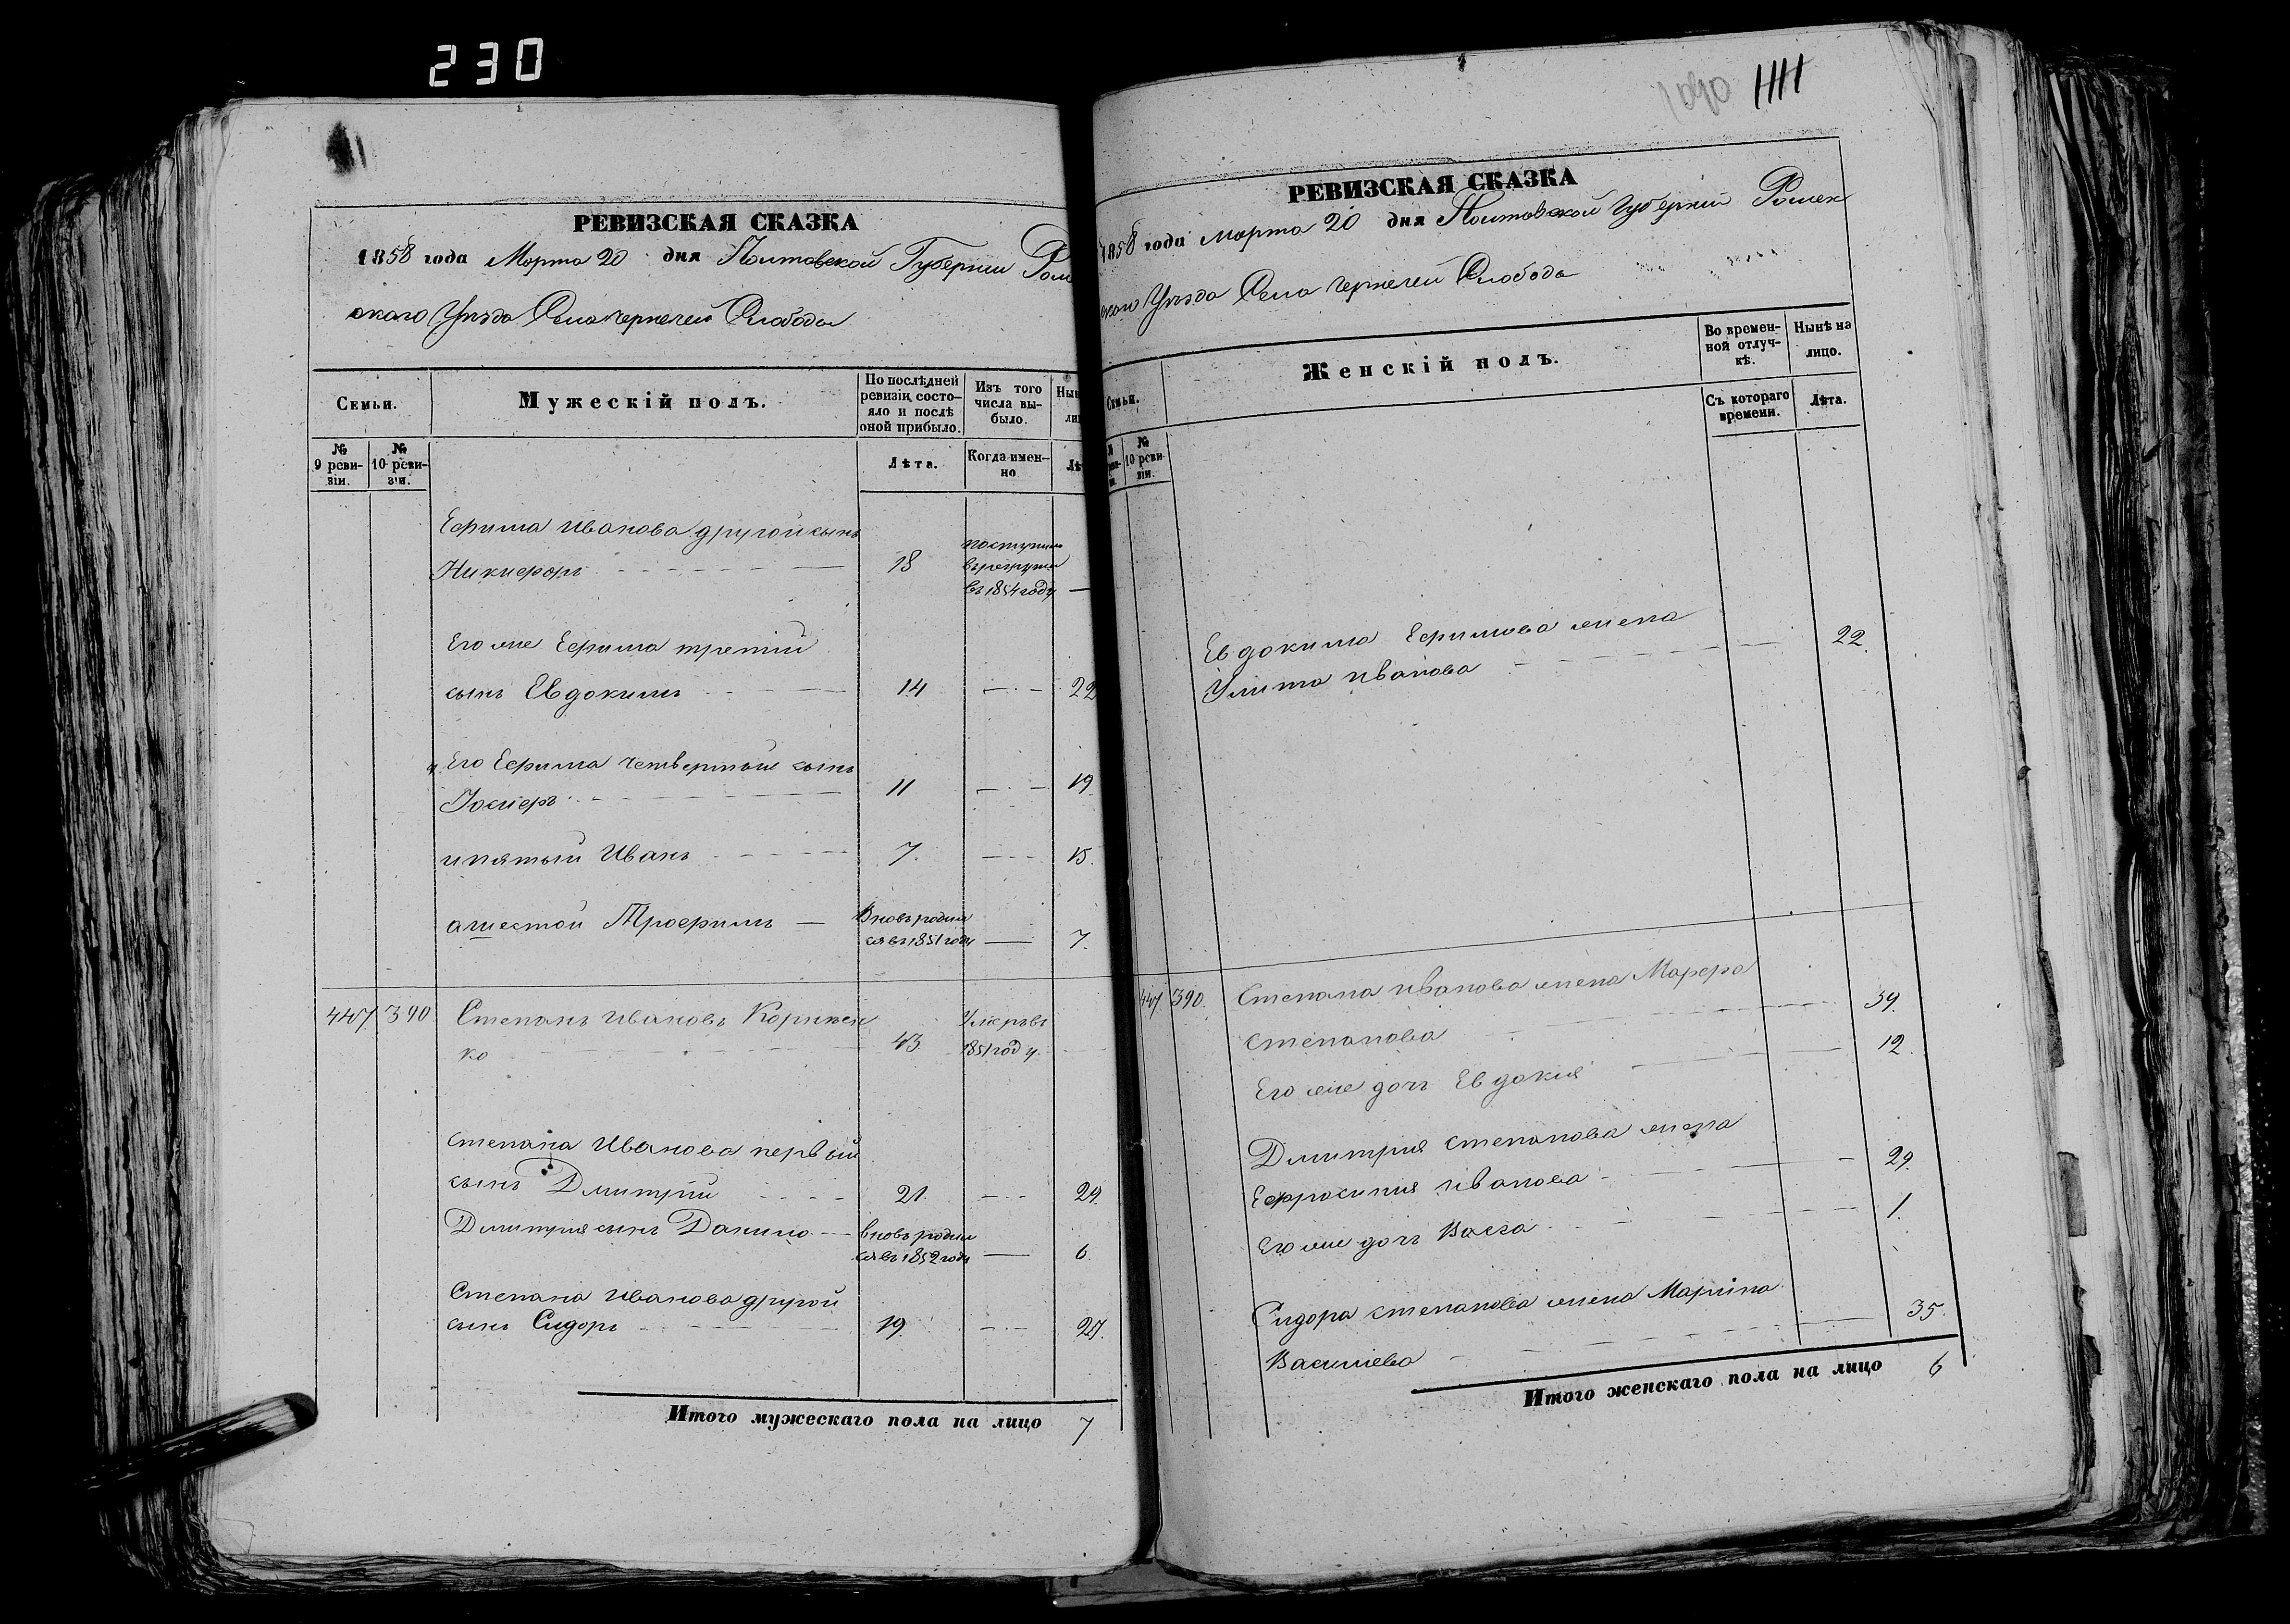 230
РЕВИЗСКАЯ СКАЗКА
1858 года Марта 20 дня Полтавской Губернии Ром
скаго Уѣзда Села Чернечей Слободы
Семьи.
Мужескій полъ.
По послѣдней ревизіи состояло и послѣ оной прибыло.
Изъ того числа выбыло.
№ 9 ревизіи.
№ 10 ревизіи.
Лѣта.
Когда именно
Ефима Иванова другой сынъ
Никифоръ 18 поступилъ
въ рекруты
въ 1854 году —
Его же Ефима третій
сынъ Евдокимъ 14 — 22
Его Ефима четвертый сынъ
Іосифъ 11 — 19
и пятый Иванъ 7. — 15.
а шестой Трофимъ — Вновь родил
ся въ 1851 году — 7.
447 390 Степанъ Ивановъ Коржен
ко 43. Умеръ въ
1851 году.
Степана Иванова первый
сынъ Дмитрій 21. — 29.
Дмитрія сынъ Данило вновь родил
ся въ 1852 году — 6.
Степана Иванова другой
сынъ Сидоръ 19. — 27.
Итого мужескаго пола на лицо 7
1090 1111
РЕВИЗСКАЯ СКАЗКА
1858 года Марта 20 дня Полтавской Губерніи Ромен
скаго Уѣзда Села Чернечей Слободы
Семьи.
Женскій полъ.
Во временной отлучкѣ.
Нынѣ на лицо.
№ 10 ревизіи.
Съ котораго времени.
Лѣта.
Евдокима Ефимова жена
Улита Иванова — 22.
447 390. Степана Иванова жена Марфа
Степанова — 39.
Его же дочь Евдокия — 12.
Дмитрия Степанова жена
Ефросиния Иванова — 29.
Его же дочь Васса — 1.
Сидора Степанова жена Марина
Василиева — 35.
Итого женскаго пола на лицо 6